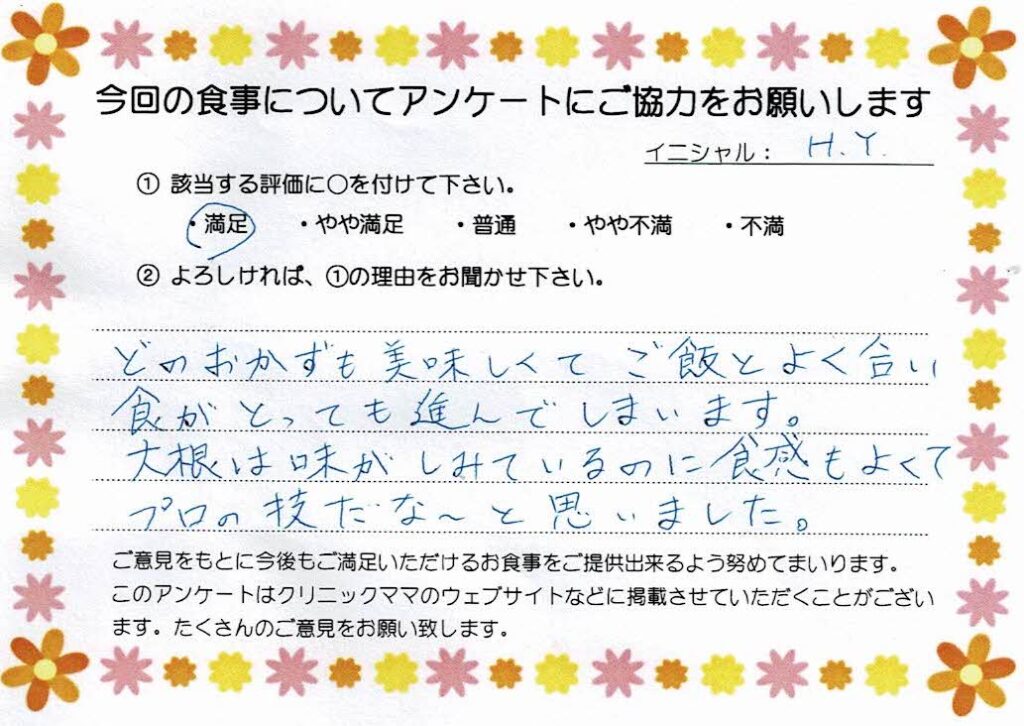 今回の食事についてアンケートにご協力をお願いします
イニシャル： H.Y.
① 該当する評価に○を付けて下さい。
・満足 ・やや満足 ・普通 ・やや不満 ・不満
② よろしければ、①の理由をお聞かせ下さい。
どのおかずも美味しくて ご飯とよく合い
食がとっても進んでしまいます。
大根は味がしみているのに食感もよくて
プロの技だな〜と思いました。
ご意見をもとに今後もご満足いただけるお食事をご提供出来るよう努めてまいります。
このアンケートはクリニックママのウェブサイトなどに掲載させていただくことがござい
ます。たくさんのご意見をお願い致します。